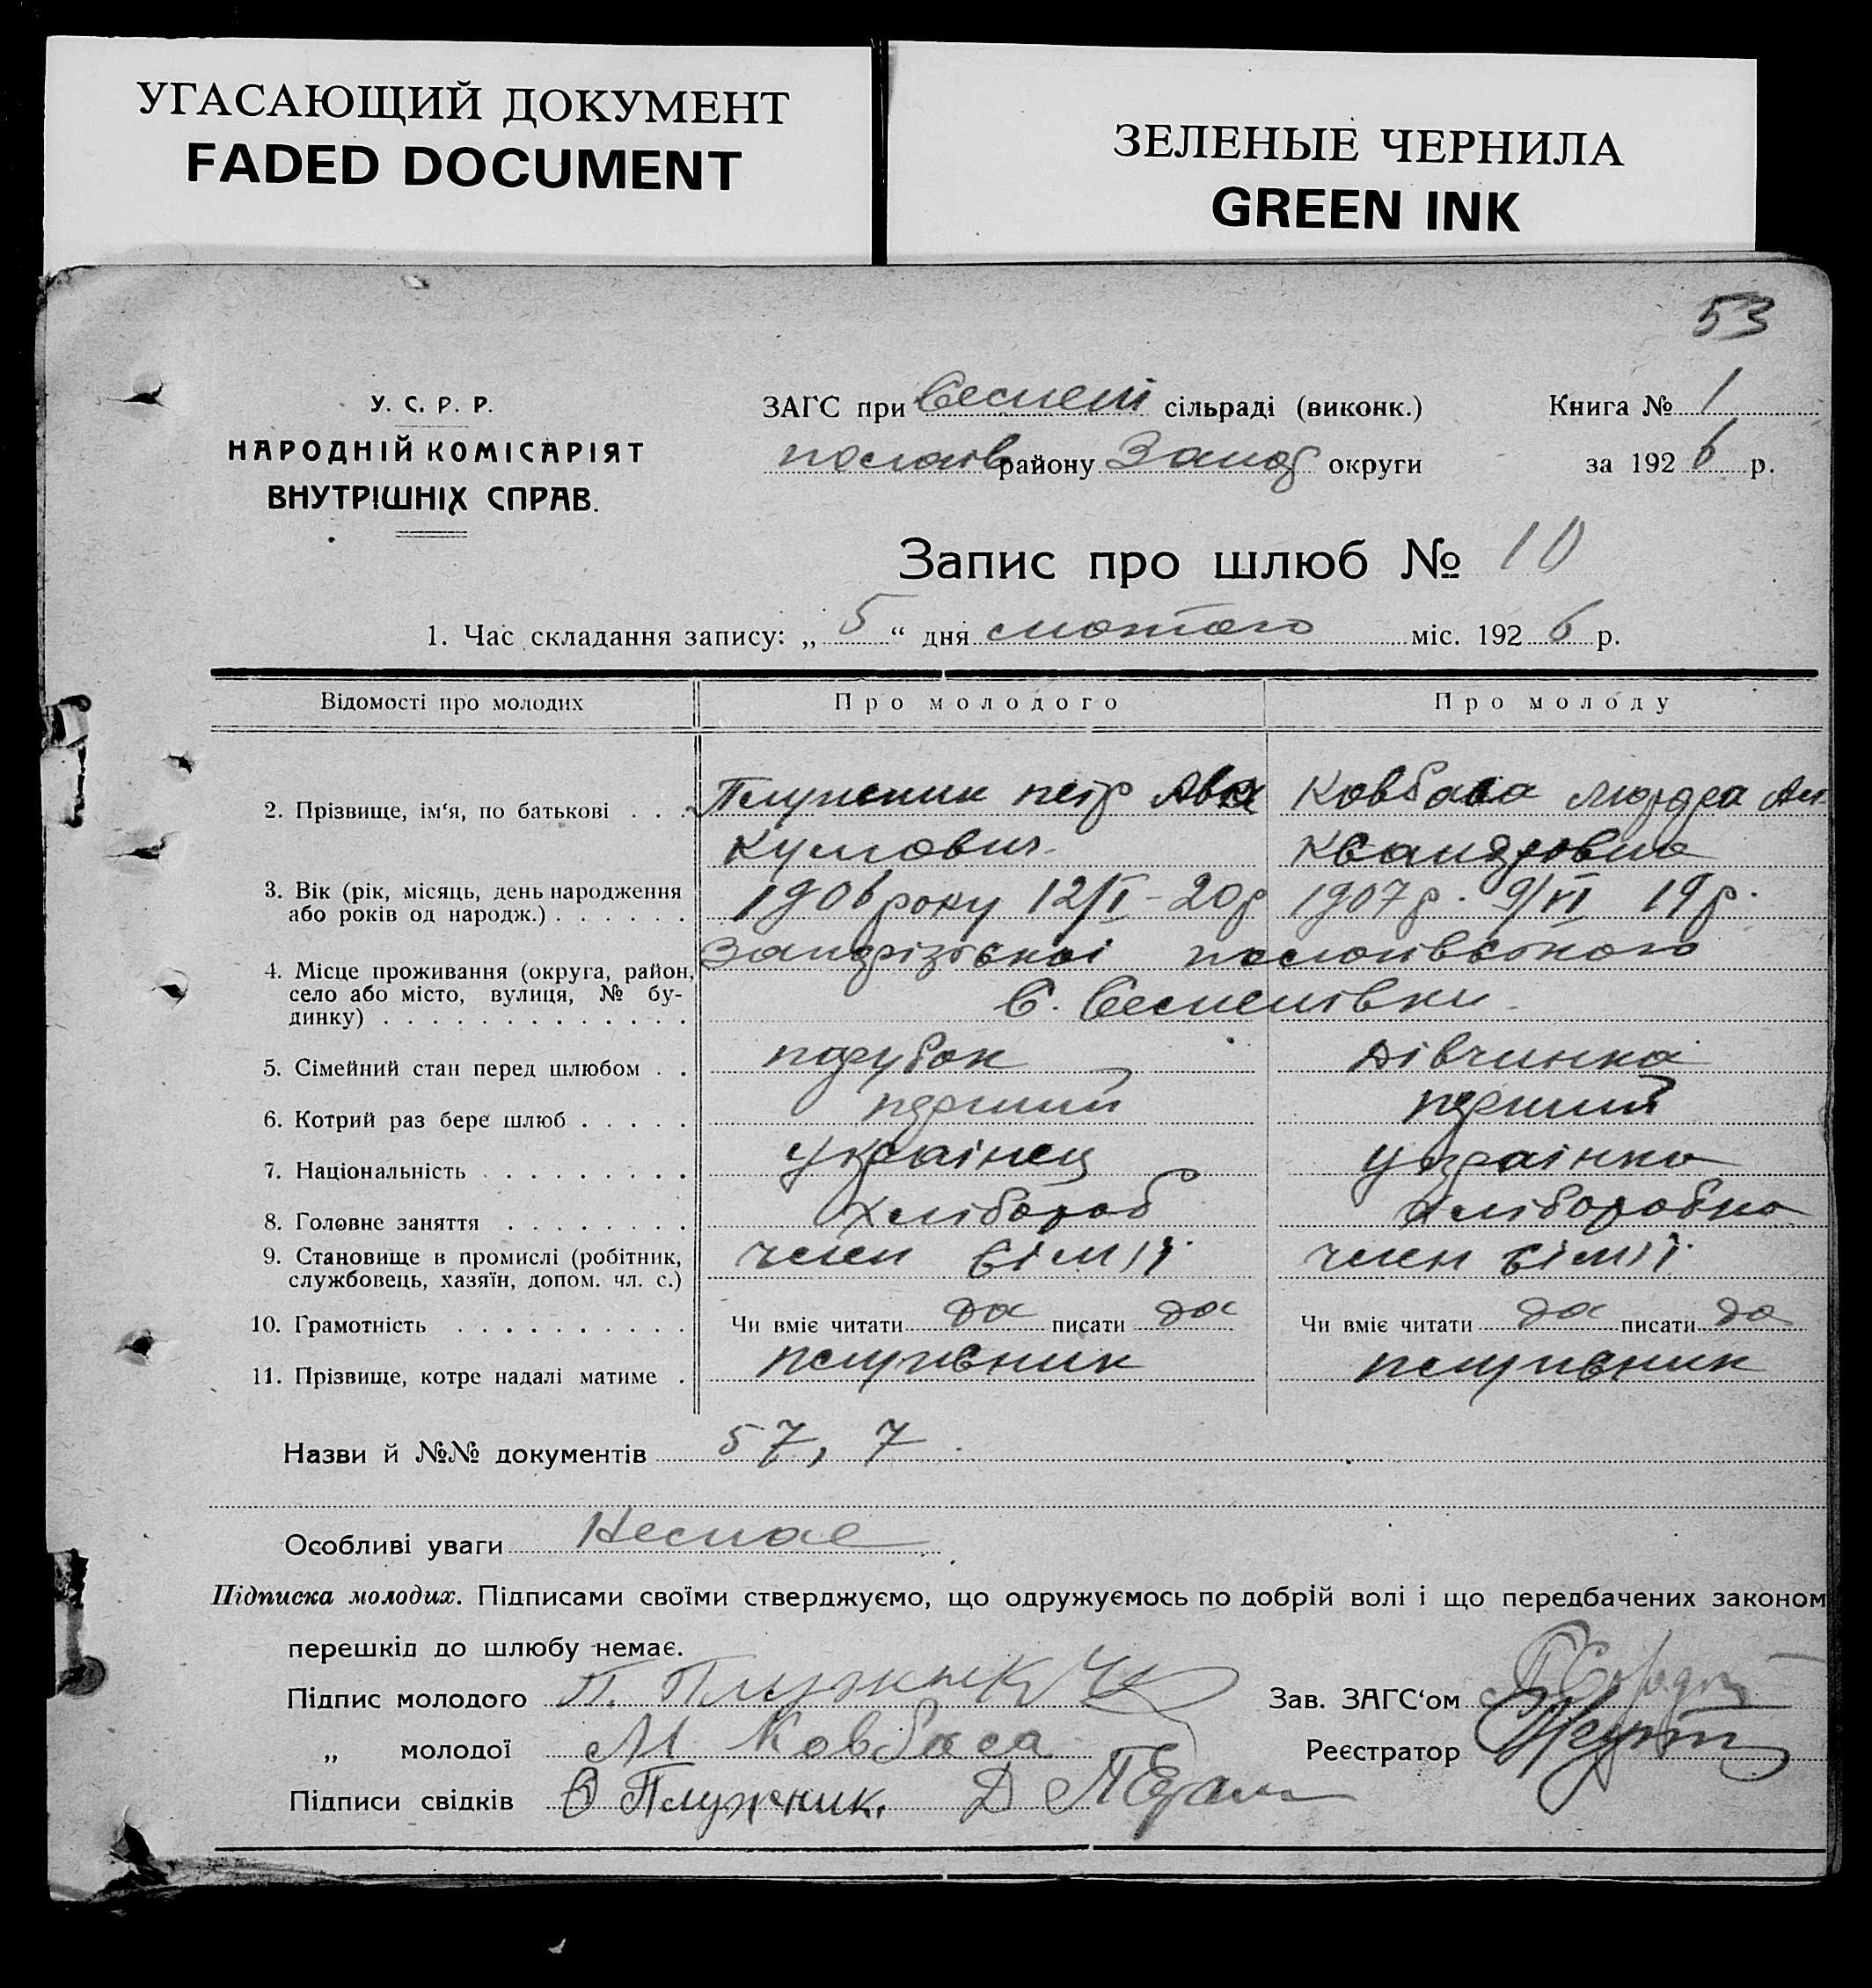 УГАСАЮЩИЙ ДОКУМЕНТ
FADED DOCUMENT
ЗЕЛЕНЫЕ ЧЕРНИЛА
GREEN INK
53
У. С. Р. Р.
НАРОДНІЙ КОМІСАРІЯТ
ВНУТРІШНІХ СПРАВ.
ЗАГС при сільраді (виконк.) Книга № 1
району Запор округи за 1926 р.
Запис про шлюб № 10
1. Час складання запису: „ 5 “ дня лютого міс. 1926 р.
Відомості про молодих Про молодого Про молоду
2. Прізвище, ім‘я, по батькові . . . Плужник петр Ава Ковбаса
кумович
3. Вік (рік, місяць, день народження
або років од народж.) . . . . . . 1906 року 12/I - 20р 1907р. 9/VI 19р.
4. Місце проживання (округа, район,
село або місто, вулиця, № бу-
динку) . . . . . . . . . . . . . Запорізської
5. Сімейний стан перед шлюбом . . парубок Дівчинка
6. Котрий раз бере шлюб . . . . . перший перший
7. Національність . . . . . . . . . українец українка
8. Головне заняття . . . . . . . . Хлібороб Хліборобка
9. Становище в промислі (робітник,
службовець, хазяїн, допом. чл. с.) член сімії член сімії
10. Грамотність . . . . . . . . . . Чи вміє читати да писати да Чи вміє читати да писати да
11. Прізвище, котре надалі матиме . плужник плужник
Назви й №№ документів 57, 7
Особливі уваги Немає
Підписка молодих. Підписами своїми стверджуємо, що одружуємось по добрій волі і що передбачених законом
перешкід до шлюбу немає.
Підпис молодого П. Плужник Зав. ЗАГС‘ом
„ молодої М Ковбаса Реєстратор
Підписи свідків О Плужник. Д